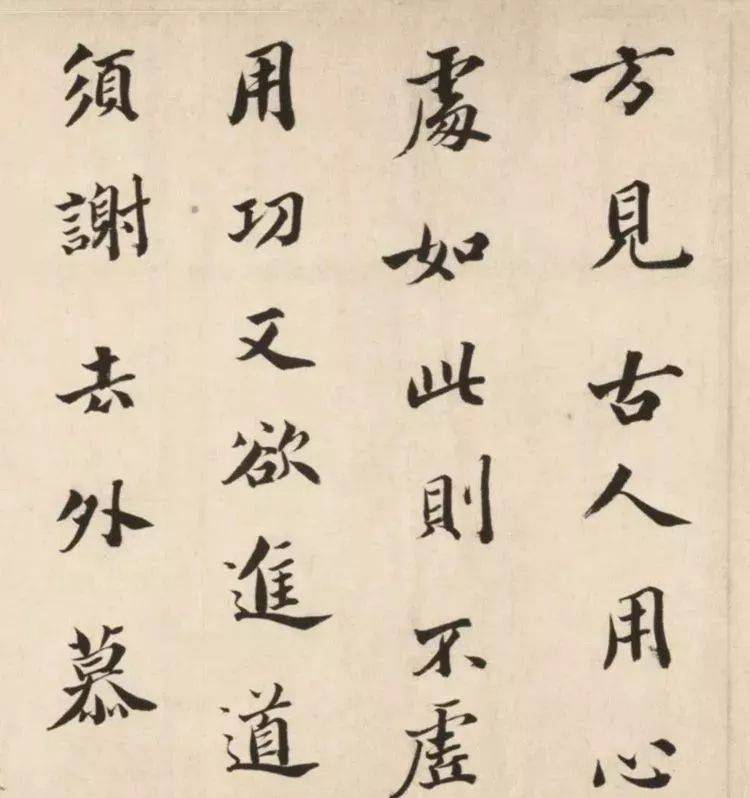 方見古人用心
處如此則不虛
用功又欲進道
須謝去外慕